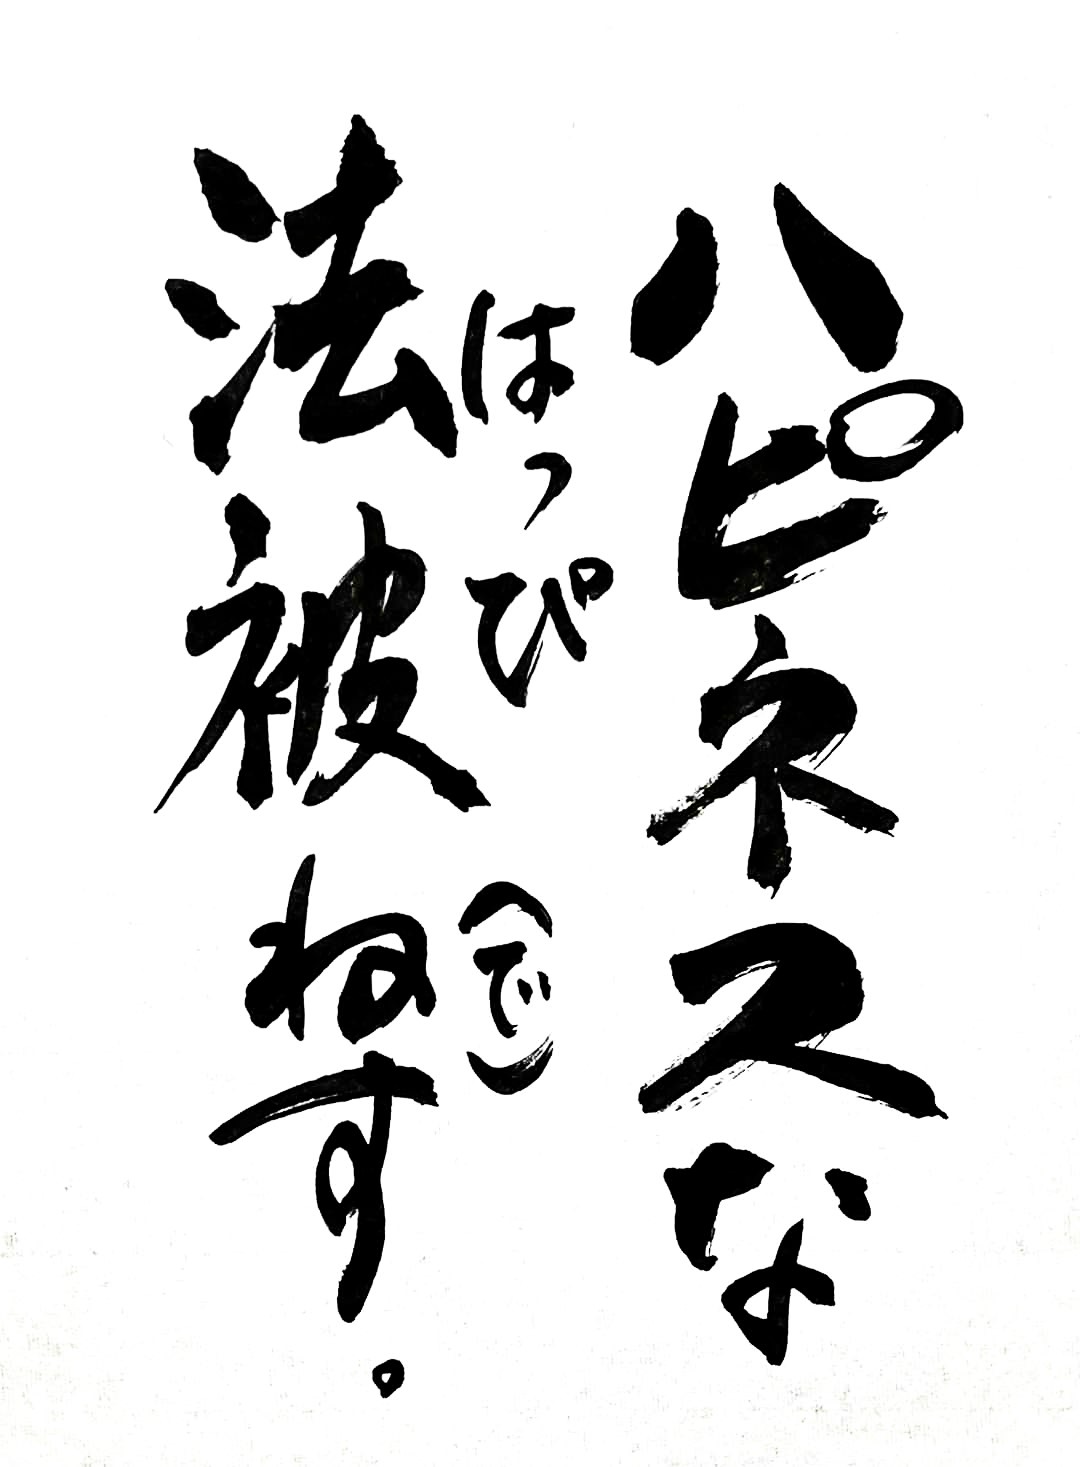 ハピネスな
はっぴ (で)
法被ねす。